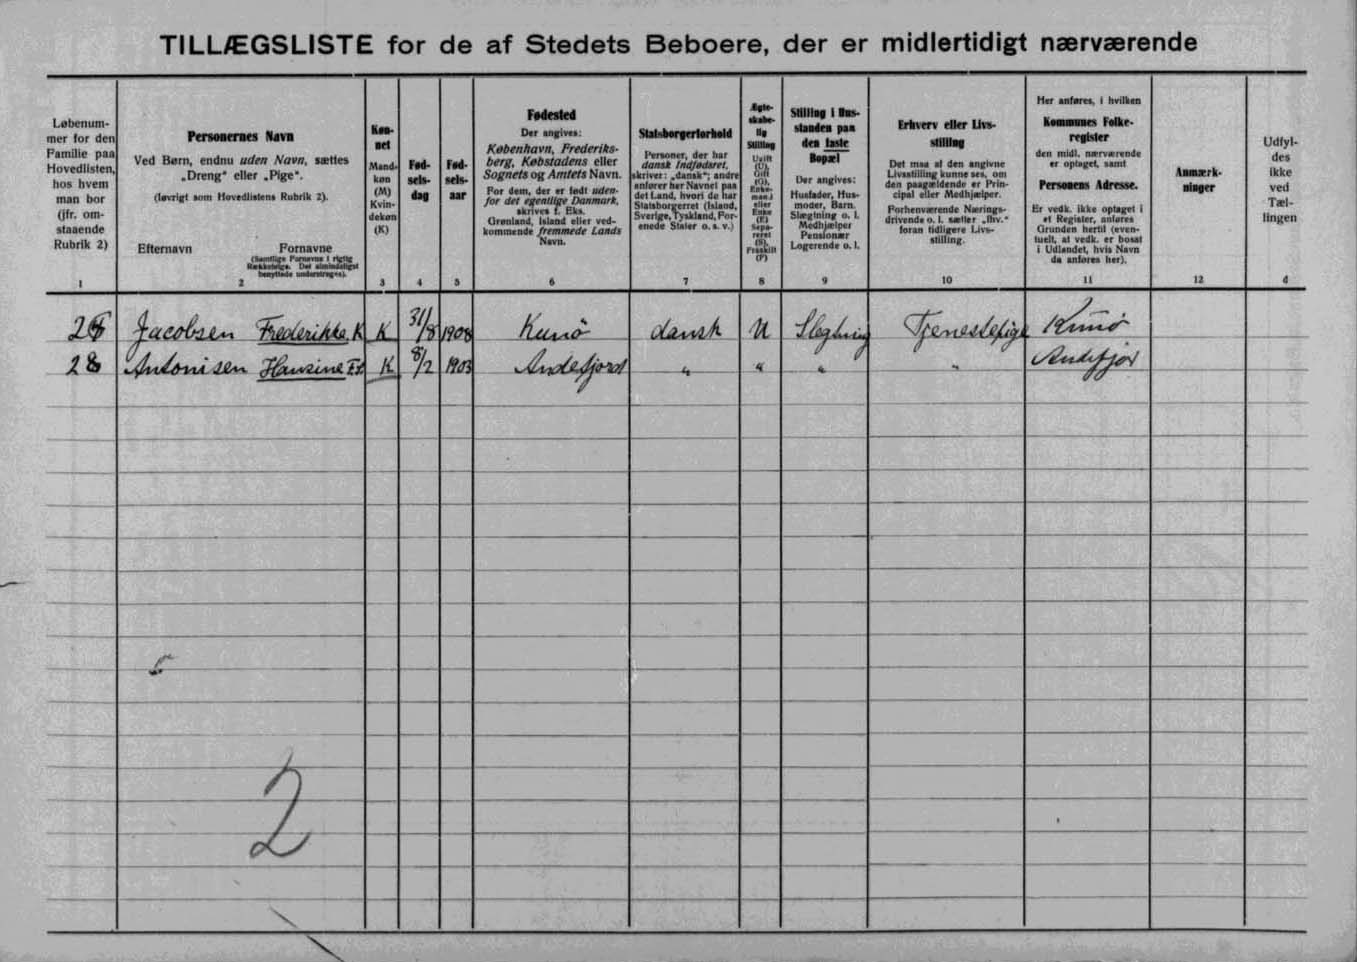 TILLÆGSLISTE for de af Stedets Beboere, der er midlertidigt nærværende
Løbenum-
mer for den
Familie paa
Hovedlisten,
hos hvem
man bor
(jfr. om-
staaende
Rubrik 2)
1
Personernes Navn
Ved Børn, endnu uden Navn, sættes
„Dreng“ eller „Pige“.
(Iøvrigt som Hovedlistens Rubrik 2).
Efternavn Fornavne
(Samtlige Fornavne i rigtig
Rækkefølge. Det almindeligst
benyttede understreges).
2
Køn-
net
Mand-
køn
(M)
Kvin-
dekøn
(K)
3
Fød-
sels-
dag
4
Fød-
sels-
aar
5
Fødested
Der angives:
København, Frederiks-
berg, Købstadens eller
Sognets og Amtets Navn.
For dem, der er født uden-
for det egentlige Danmark,
skrives f. Eks.
Grønland, Island eller ved-
kommende fremmede Lands
Navn.
6
Statsborgerforhold
Personer, der har
dansk Indfødsret,
skriver: „dansk“; andre
anfører her Navnet paa
det Land, hvori de har
Statsborgerret (Island,
Sverige, Tyskland, For-
enede Stater o. s. v.)
7
Ægte-
skabe-
lig
Stilling
Ugift
(U),
Gift
(G),
Enke-
mand
eller
Enke
(E)
Sepa-
reret
(S),
Fraskilt
(F)
8
Stilling i Hus-
standen paa
den faste
Bopæl
Der angives:
Husfader, Hus-
moder, Barn,
Slægtning o. l.
Medhjælper
Pensionær
Logerende o. l.
9
Erhverv eller Livs-
stilling
Det maa af den angivne
Livsstilling kunne ses, om
den paagældende er Prin-
cipal eller Medhjælper.
Forhenværende Nærings-
drivende o. l. sætter „fhv.“
foran tidligere Livs-
stilling.
10
Her anføres, i hvilken
Kommunes Folke-
register
den midl. nærværende
er optaget, samt
Personens Adresse.
Er vedk. ikke optaget i
et Register, anføres
Grunden hertil (even-
tuelt, at vedk. er bosat
i Udlandet, hvis Navn
da anføres her).
11
Anmærk-
ninger
12
Udfyl-
des
ikke
ved
Tæl-
lingen
d
Jacobsen Frederikke K. K 31/8 1908 Kunö dansk U Slegtning Tjenestepige Kunö
28 Antonisen Hansine K 8/2 1903 Andefjord „ „ „ „ Andefjor
2